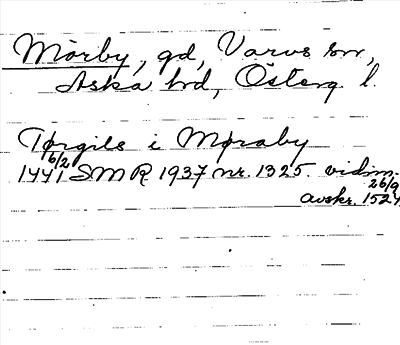 Mörby, gd, Varvs sn,
Aska hd, Österg l.
Torgils i Møraby
6/2
1441 SMR 1937 nr. 1325. vidim.
26/9
avskr. 1524